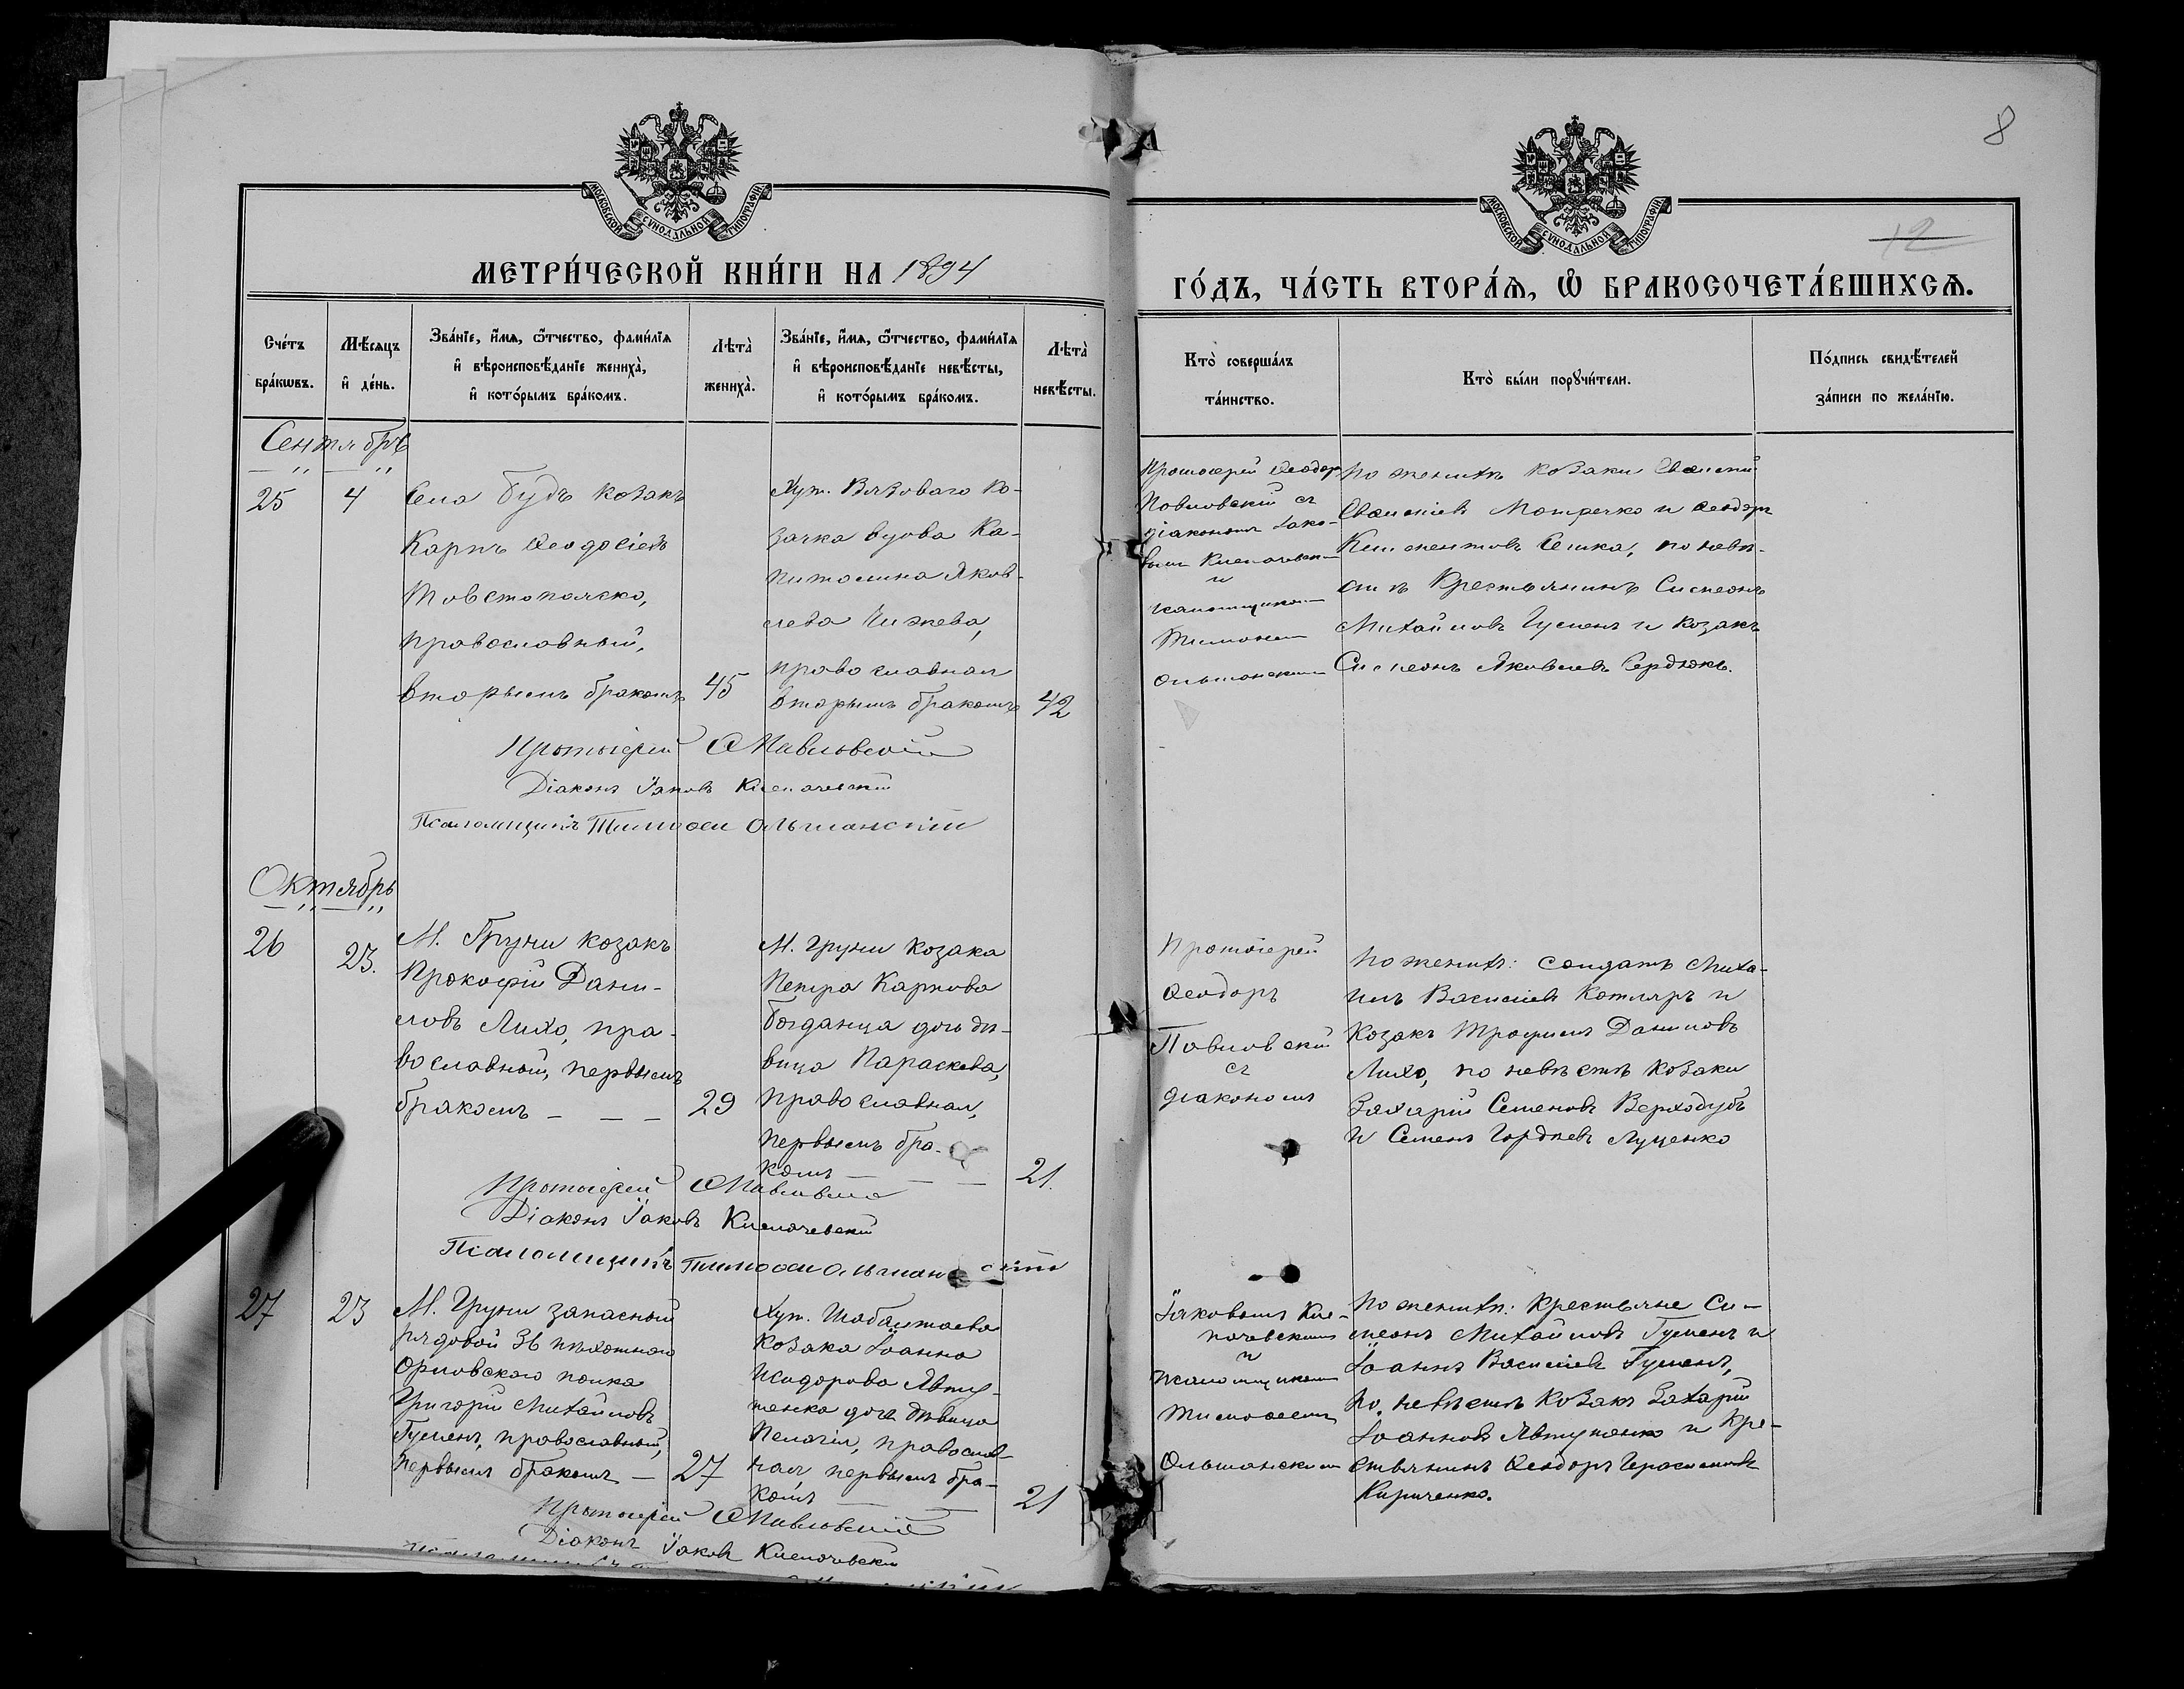 8
МОСКОВСКОЙ СѴНОДАЛЬНОЙ ТИПОГРАФІИ
МОСКОВСКОЙ СѴНОДАЛЬНОЙ ТИПОГРАФІИ
12
МЕТРИ́ЧЕСКОЙ КНИ́ГИ НА 1894
ГО́ДЪ, ЧА́СТЬ ВТОРА́Ѧ, Ѡ҆ БРАКОСОЧЕТА́ВШИХСѦ.
Сче́тъ
бра́кѡвъ.
Мѣ́сѧцъ
и҆ де́нь.
Зва́нїе, и҆́мѧ, ѻ҆́тчество, фами́лїѧ
и҆ вѣроисповѣ́данїе жениха̀,
и҆ кото́рымъ бра́комъ.
Лѣта̀
жениха̀.
Зва́нїе, и҆́мѧ, ѻ҆́тчество, фами́лїѧ
и҆ вѣроисповѣ́данїе невѣ́сты,
и҆ кото́рымъ бра́комъ.
Лѣта̀
невѣ́сты.
Кто̀ соверша́лъ
та́инство.
Кто̀ бы́ли порꙋчи́тели.
По́дпись свидѣ́телей
за́писи по жела́нїю.
Сентябрь
25
4
Села Будъ козакъ
Карпъ Ѳеодосіевъ
Товстоплско,
православный,
вторымъ бракомъ
45
Хут. Вязоваго ко-
зачка вдова Ка-
питолина Яков-
лева Чижева,
православная
вторымъ бракомъ
42
Протоіерей Ѳеодор
Павловскій съ
діакономъ Іако-
вымъ
и
псаломщиком
Тимоѳеем
Ольшанским
По женихѣ козаки Евѳимій
Евѳиміевъ Мотречко и Ѳеодоръ
Климентовъ Сешка, по невѣ-
стѣ Крестьянинъ Симеонъ
Михайловъ Гуменъ и Козакъ
Симеонъ Яковлевъ Сердюкъ.
Протоіерей Ѳ Павловскій
Діаконъ Іаковъ Клепачевскій
Псаломщикъ Тимоѳей Ольшанскій
Октябрь
26
23.
М. Груни козакъ
Прокофій Дани-
ловъ Лихо, пра-
вославный, первымъ
бракомъ — — —
29
М. Груни козака
Петра Карпова
Богданца дочь дѣ-
вица Параскева,
православная,
первымъ бра-
комъ — — —
21.
Протоіерей
Ѳеодоръ
Павловскій
съ
діакономъ
По женихѣ: солдатъ Миха-
илъ Василіевъ Котляръ и
козакъ Трофимъ Даниловъ
Лихо, по невѣстѣ козаки
Захарій Семеновъ Верходубъ
и Семенъ Гордѣевъ Луценко
Протоіерей Ѳ Павловскій
Діаконъ Іаковъ Клепачевскій
Псаломщикъ Тимоѳей Ольшанскій
27
23
М. Груни запасный
рядовой 36 пѣхотнаго
Орловскаго полка
Григорій Михайловъ
Гуменъ, православный,
первымъ бракомъ —
27
Хут. Шабалтаева
козака Іоанна
Исидорова Явту-
шенка дочь дѣвица
Пелагія, православ-
ная, первымъ бра-
комъ — —
21
Іаковымъ Кле-
пачевскимъ
и
псаломщикомъ
Тимоѳеемъ
Ольшанскимъ
По женихѣ: крестьяне Си-
меонъ Михайловъ Гуменъ и
Іоаннъ Василіевъ Гуменъ,
по невѣстѣ козакъ Захарій
Іоанновъ Явтушенко и кре-
стьянинъ Ѳеодоръ Герасимовъ
Кириченко.
Протоіерей Ѳ Павловскій
Діаконъ Іаковъ Клепачевскій